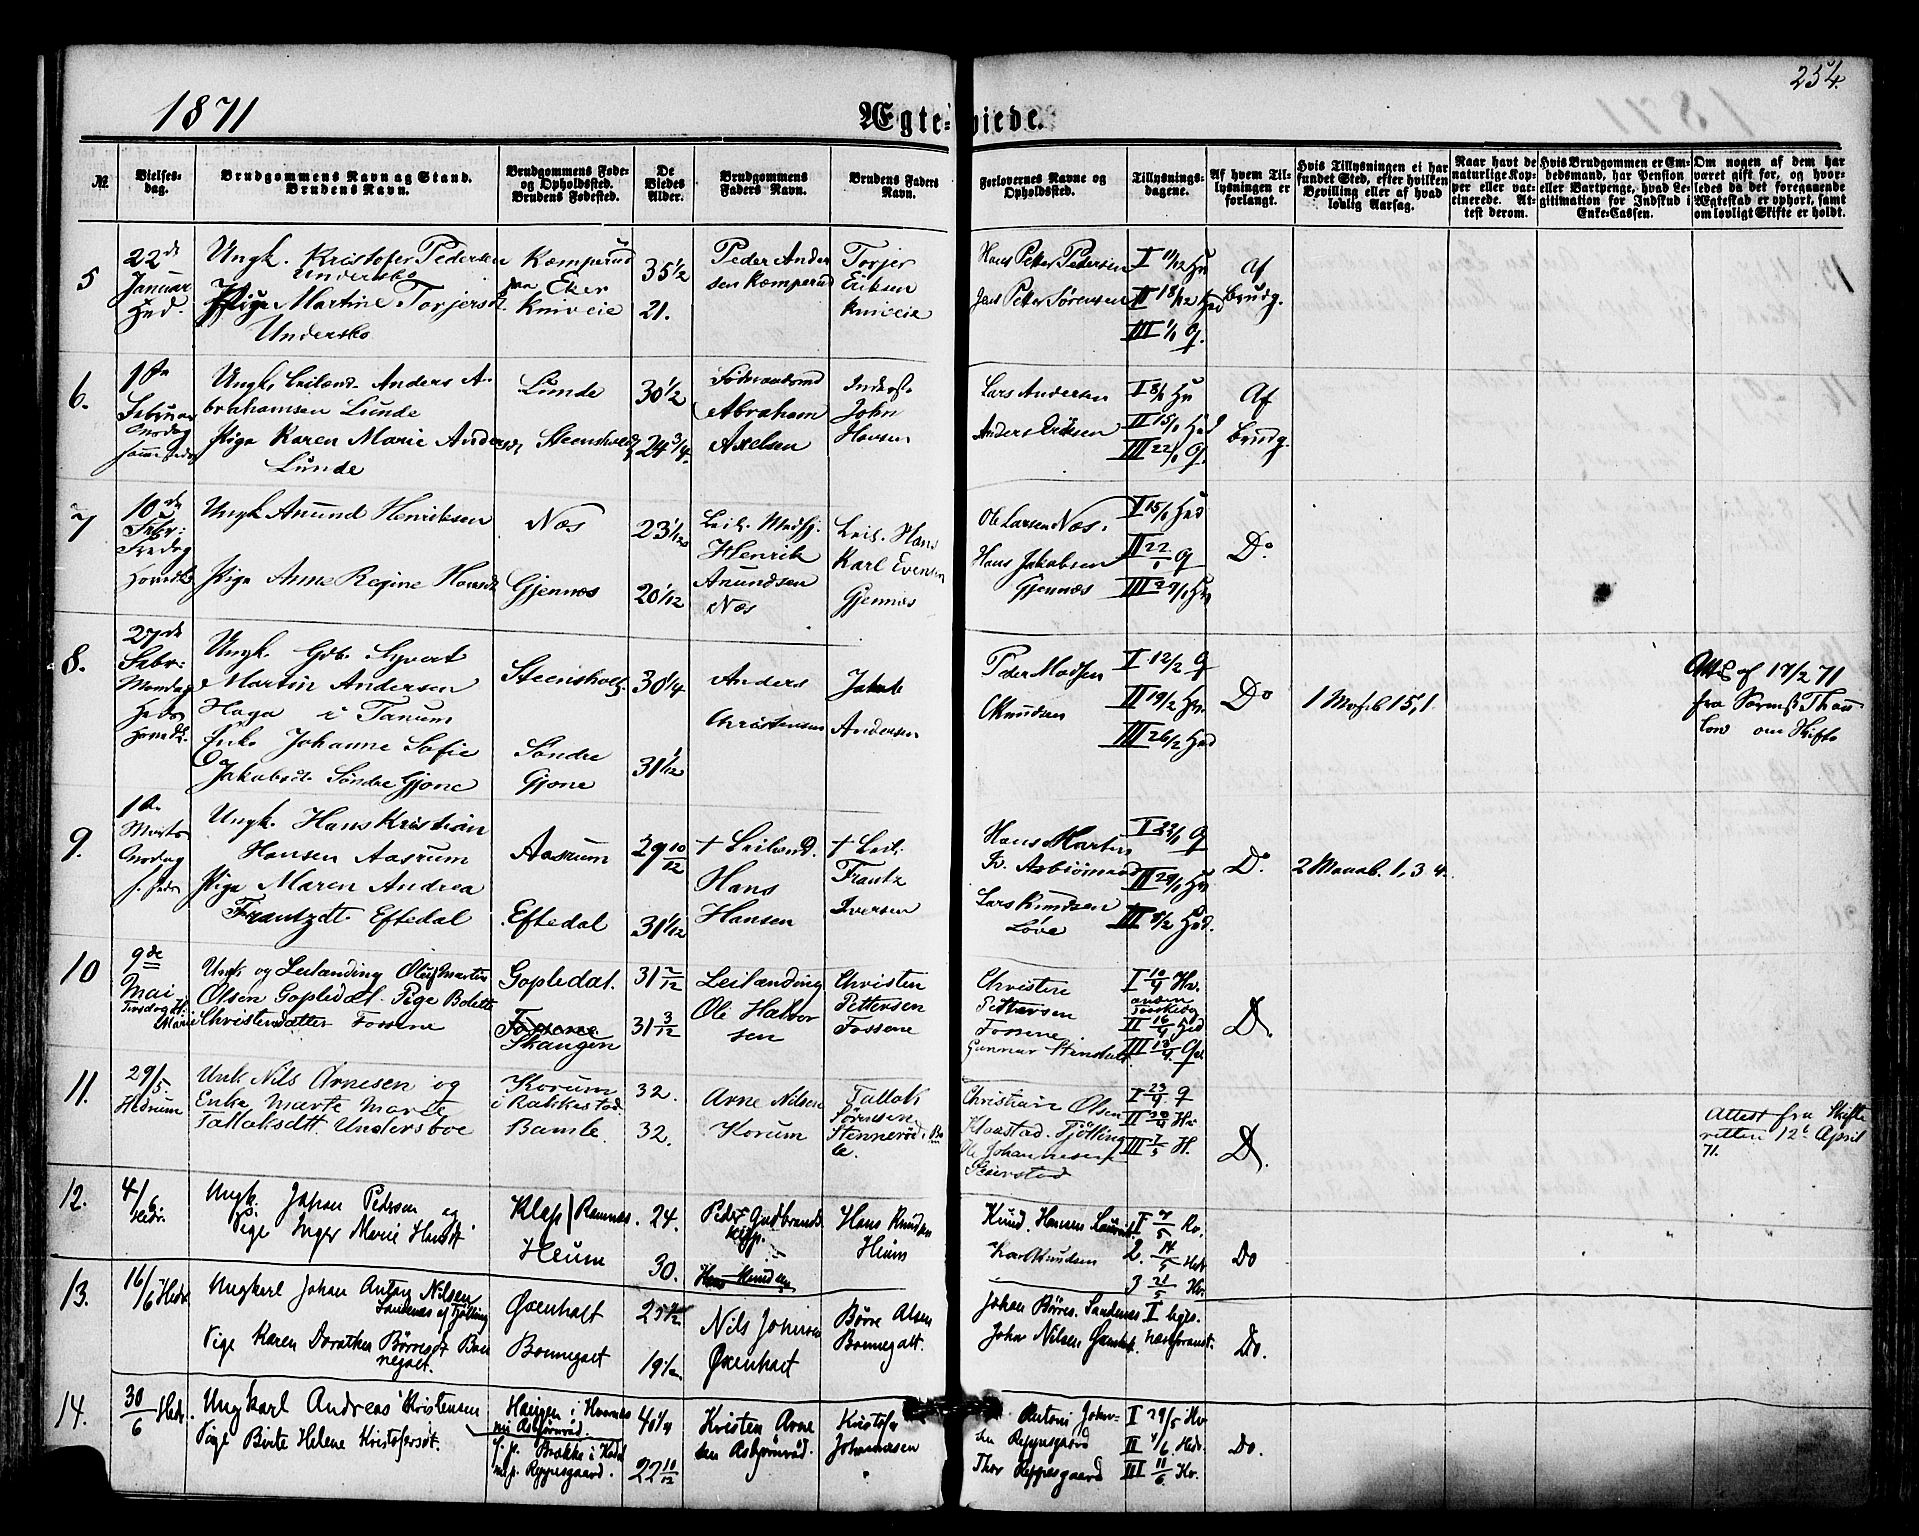 1871
Ægte-viede.
254.
№
Vielses-
dag.
Brudgommens Navn og Stand.
Brudens Navn.
Brudgommens Føde-
og Opholdsted.
Brudens Fødested.
De
Viedes
Alder.
Brudgommens
Faders Navn.
Brudens Faders
Navn.
Forlovernes Navne og
Opholdsted.
Tillysnings-
dagene.
Af hvem Til-
lysningen er
forlangt.
Hvis Tillysningen ei har
fundet Sted, efter hvilken
Bevilling eller af hvad
lovlig Aarsag.
Naar havt de
naturlige Kop-
per eller vac-
cinerede. At-
test derom.
Hvis Brudgommen er Em-
bedsmand, har Pension
eller Vartpenge, hvad Le-
gitimation for Indskud i
Enke-Cassen.
Om nogen af dem har
været gift før, og hvor-
ledes da det foregaaende
Ægteskab er ophørt, samt
om lovligt Skifte er holdt.
5
22de
Januar
Hed.
Ungk. Kristofer Pedersen
Undersbo
Pige Martine Torjersd.
Undersbo
Komperud
paa Eker
Kniveie
35 1/2
21.
Peder Ander
sen Komperud
Torjer
Eriksen
Kniveie
Hans Petter Pedersen
Jens Peter Sørensen
I 11/12 Hv
II 18/12 Hed
III 1/1 Q.
Af
Brudg.
6.
1ste
Februar
Onsdag
Ungk. Leilænd. Anders A-
brahamsen Lunde
Pige Karen Marie Andersd.
Lunde
Lunde
Steensholt
30 1/2
24 3/4.
Abraham
Axelsen
John
Hansen
Lars Andersen
Anders Eriksen
I 8/1 Hv
II 15/1 Hed
III 22/1 Q.
Af
Brudg.
7
10de
Febr:
Fredag
Ungk. Anund Henriksen
Pige Anne Regine Hansd.
Næs
Gjennæs
23 1/12
20 1/12
Henrik
Anundsen
Næs
Leil. Hans
Karl Evensen
Gjennæs
Ole Larsen Næs.
Hans Jakobsen
Gjennæs
I 15/1 Hed
II 22/1 Q
III 29/1 Hv
Do
8.
27de
Febr:
Mandag
Ungk. Gdb. Syvert
Martin Andersen
Haga i Tanum
Enke Johanne Sofie
Jakobsd. Søndre Gjone
Steensholt.
Søndre
Gjone
30 1/4
31 1/12
Anders
Christensen
Jakob
Andersen
Peder Madsen
O Knudsen
I 12/2 Q
II 19/2 Hv.
III 26/2 Hed
Do
1 Moseb 15, 1.
Att. af 17/2 71
fra Sorensk. Thau
low om Skifte
9.
1ste
Marts
Onsdag
Ungk. Hans Kristian
Hansen Aasrum
Pige Maren Andrea
Frantzdt. Eftedal
Aasrum
Eftedal
29 10/12
31 1/12
+ Leilænd.
Hans
Hansen
+ Leil.
Frantz
Iversen
Hans Martin
Lars Knudsen
Løve
I 22/1 Q
II 29/1 Hv
III 5/2 Hed.
Do.
10
9de
Mai
Tirsdag
Ungk. og Leilænding Oluf Martin
Olsen Gopledal. Pige Bolette
Marie Christensdatter Fossene
Gopledal.
Fossene
Skaugen
31 7/12
31 3/12
Leilænding
Ole Halvor
sen
Christen
Pettersen
Fossene
Christen
Pettersen
Fossene
Gunnar Stensholt
I 10/4 Hv.
anden
Paaskedag
II 16/4 Hed
III 13/4 Q.
D.
11.
29/5
Hedrum
Unk. Nils Arnesen og
Enke Marte Marie
Tallaksdtt Undersboe
Korum
i Rakkestad.
Bamle
32.
32.
Arne Nilsen
Korum
Tallak
Sørensen
Stennerød. Bam
le.
Christian Olsen
Klaastad. Tjølling
Ole Johannesen
I 23/4 Q
II 30/4 Hv
III 7/5 H.
D.
Attest fra Skifte
retten 12te April
71.
12.
4/6
Hedr.
Ungk. Johan Pedersen og
Pige Inger Marie Hansdt
Klep / Ramnæs.
Heum
24.
30.
Peder Gudbrands
Klepp.
Hans Knudsen
Hans Knudsen
Heum
Knud. Hansen
Karl Knudsen
I 7/5 Kv.
2. 14/5 Hed
3 21/5 Kv.
Do
13.
16/6 Hedr
Ungkarl Johan Anton Nilsen
Sandnæs af Tjølling
Pige Karen Dorathea Børresdt Bon
negalt.
Øxenholt
Bonnegalt
25
19 1/2
Nils Johnsen
Øxenholt
Børre Olsen
Bonnegalt.
Johan Børres. Sandenæs
John Nilsen Øxenholt.
I
Do.
14.
30/6 Hedr.
Ungkarl Andreas Kristensen
Pige Birte Helene Kristofersdt.
Haugen i Hvarnes
nu Asbjørnrød.
f. p. Brække i Hedr
nu p. Reppesgaard.
40 1/4
22 10/12
Kristen Arne
sen Asbjørnrød.
Kristofer
Johannesen
Antoni Johan-
sen Reppesgaard
Thor Reppesgaard
I 29/5 Hv
II 4/6. Hedr.
III 11/6 Kv.
Do.